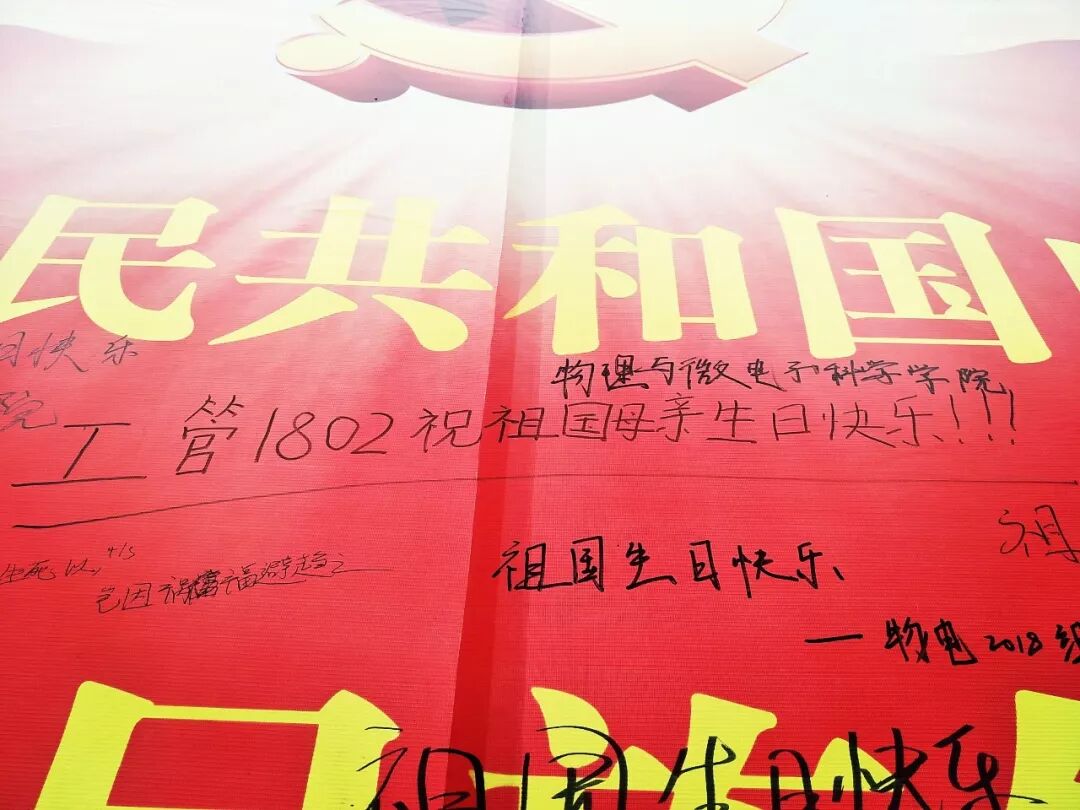 民共和国
日快乐
物理与微电子科学学院
院
工管1802祝祖国母亲生日快乐!!!
祖
生死以,
岂因祸福避趋之
祖国生日快乐
一物电2018级
祖国生日快乐